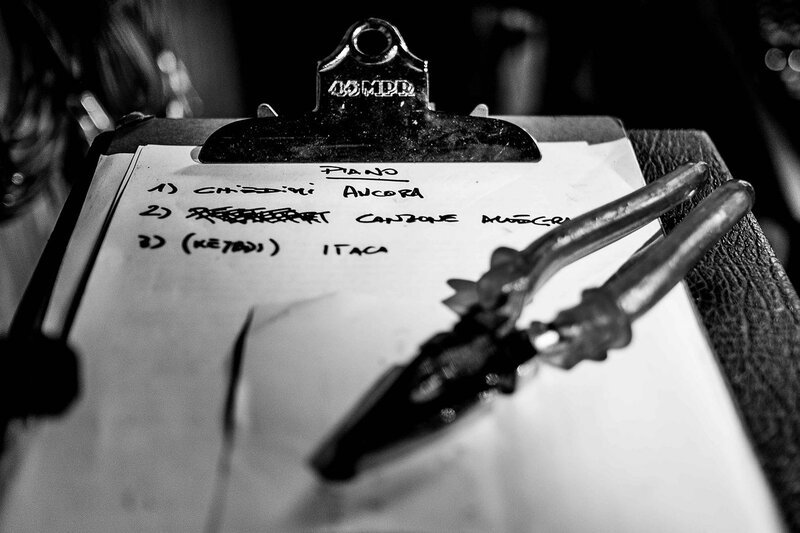 PIANO
1) CHIEDIMI ANCORA
2) CANZONE ALLEGRA
3) (KEYBDS) ITACA